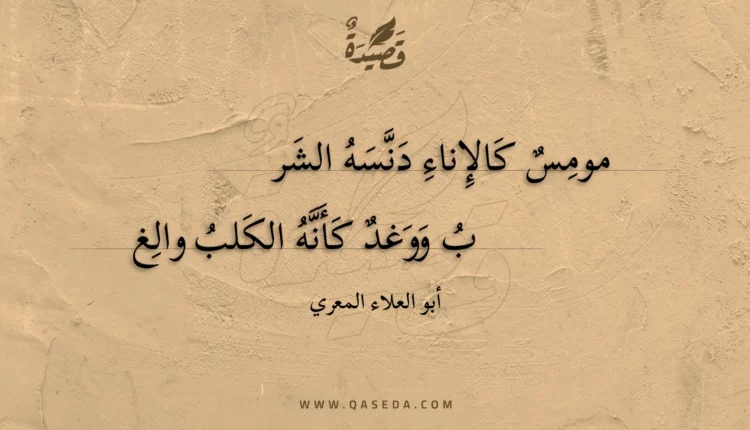 قَصِيْدَةٌ
مومِسٌ كَالإِناءِ دَنَّسَهُ الشَر
بُ وَوَغدٌ كَأَنَّهُ الكَلبُ والِغ
أبو العلاء المعري
WWW.QASEDA.COM